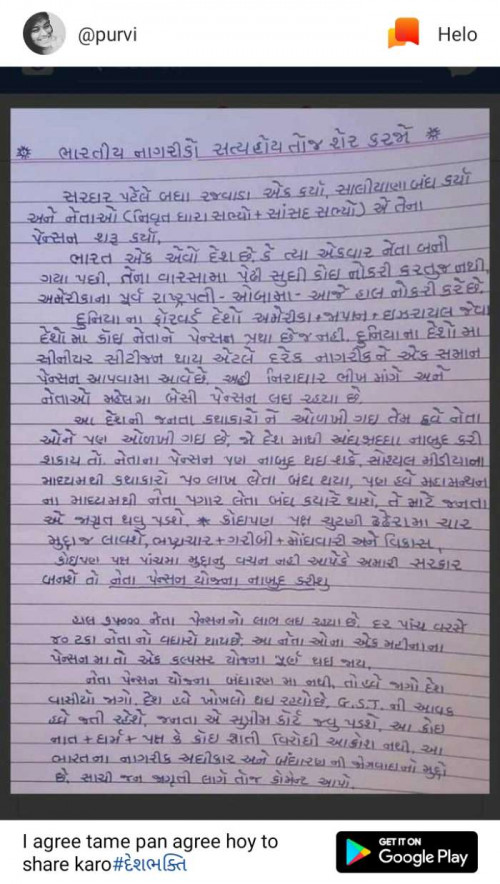 @purvi
Helo
* ભારતીય નાગરીકો સત્યહોય તોજ શેર કરજો *
સરદાર પટેલે બધા રજવાડા એક કર્યા, સાલીયાણા બંધ કર્યા
અને નેતાઓ (નિવૃત ધારાસભ્યો + સાંસદ સભ્યો) એ તેના
પેન્સન શરૂ કર્યા,
ભારત એક એવો દેશ છે, કે ત્યા એકવાર નેતા બની
ગયા પછી, તેના વારસામા પેઢી સુધી કોઇ નોકરી કરતુજ નથી,
અમેરીકાના પુર્વ રાષ્ટ્રપતી - ઓબામા - આજે હાલ નોકરી કરે છે.
દુનિયા ના ફોરવર્ડ દેશો અમેરીકા + જાપાન + ઇઝરાયલ જેવા
દેશો મા કોઇ નેતાને પેન્સન પ્રથા છેજ નહી. દુનિયા ના દેશો મા
સીનીયર સીટીજન થાય એટલે દરેક નાગરીક ને એક સમાન
પેન્સન આપવામા આવે છે, અહી નિરાધાર ભીખ માંગે અને
નેતાઓ મહેલમા બેસી પેન્સન લઇ રહયા છે.
આ દેશની જનતા કથાકારો ને ઓળખી ગઇ તેમ હવે નેતા
ઓને પણ ઓળખી ગઇ છે, જો દેશ માથી અંધશ્રધ્ધા નાબુદ કરી
શકાય તો. નેતાના પેન્સન પણ નાબુદ થઇ શકે, સોશ્યલ મીડીયાના
માધ્યમથી કથાકારો ૫૦ લાખ લેતા બંધ થયા, પણ હવે મહામન્થન
ના માધ્યમથી નેતા પગાર લેતા બંધ કયારે થાશે, તે માટે જનતા
એ જાગૃત થવુ પડશે. * કોઇપણ પક્ષ ચુટણી ઢંઢેરામા ચાર
મુદ્દાજ લાવશે, ભ્રષ્ટાચાર + ગરીબી + મોંઘવારી અને વિકાસ,
કોઇપણ પક્ષ પાંચમા મુદ્દાનુ વચન નહી આપેકે અમારી સરકાર
બનશે તો નેતા પેન્સન યોજના નાબુદ કરીશુ
હાલ નેતા પેન્સનનો લાભ લઇ રહયા છે. દર પાંચ વરસે
૪૦ ટકા નેતા નો વધારો થાય છે. આ નેતા ઓના એક મહીનાના
પેન્સન મા તો એક કલ્પસર યોજના પુર્ણ થઇ જાય,
નેતા પેન્સન યોજના બંધારણ મા નથી, તો હવે જાગો દેશ
વાસીયો જાગો. દેશ હવે ખોખલો થઇ રહયો છે, G.S.T. ની આવક
હવે જતી રહેશે, જનતા એ સુપ્રીમ કોર્ટ જવુ પડશે, આ કોઇ
નાત + ધર્મ + પક્ષ કે કોઇ જ્ઞાતી વિરોધી આક્રોશ નથી, આ
ભારતના નાગરીક અધીકાર અને બંધારણ ની જોગવાઇ નો મુદ્દો
છે, સાચી જન જાગૃતી લાગે તોજ કોમેન્ટ આપો.
I agree tame pan agree hoy to
share karo#દેશભક્તિ
GET IT ON
Google Play